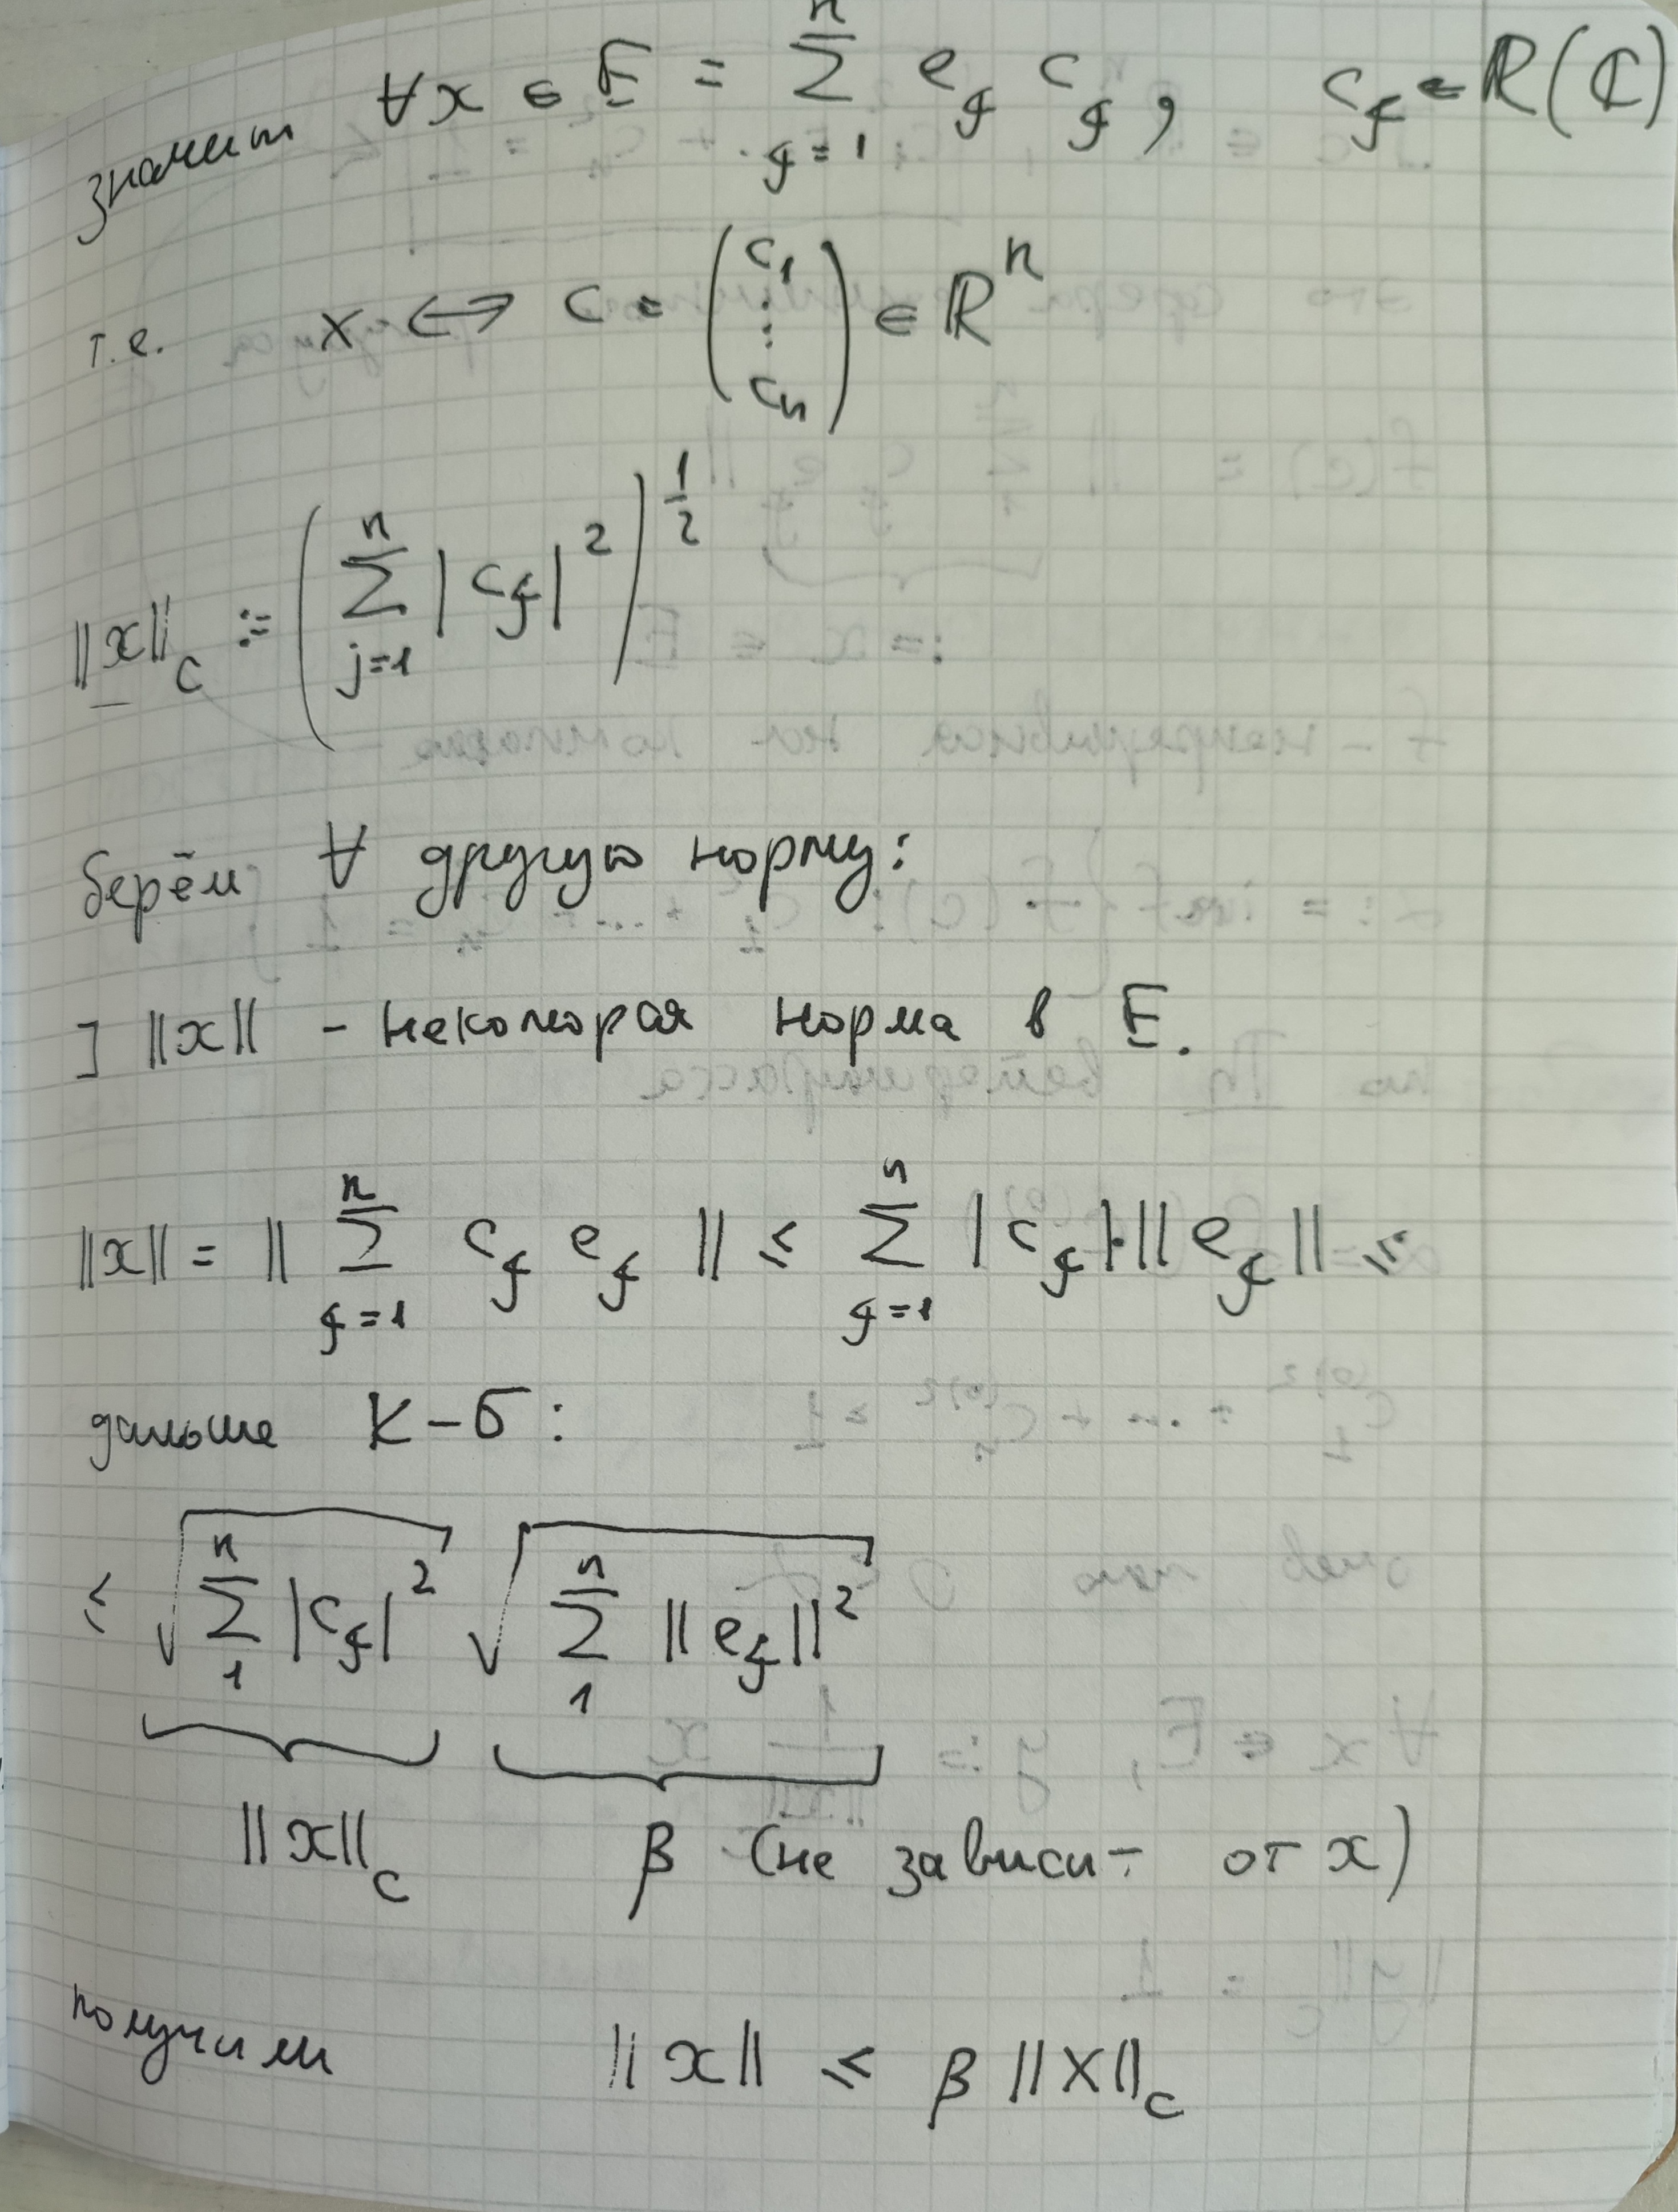 значит ∀x ∈ E = ∑_{j=1}^{n} e_j c_j, c_j ∈ ℝ(ℂ)
т.е. x ↔ c = (c_1 ⋮ c_n) ∈ ℝ^n
||x||_c := (∑_{j=1}^{n} |c_j|^2)^{1/2}
берём ∀ другую норму:
] ||x|| - некоторая норма в E.
||x|| = || ∑_{j=1}^{n} c_j e_j || ≤ ∑_{j=1}^{n} |c_j|·||e_j|| ≤
дальше К-Б:
≤ √(∑_{1}^{n} |c_j|^2) √(∑_{1}^{n} ||e_j||^2)
||x||_c β (не зависит от x)
получим ||x|| ≤ β ||x||_c